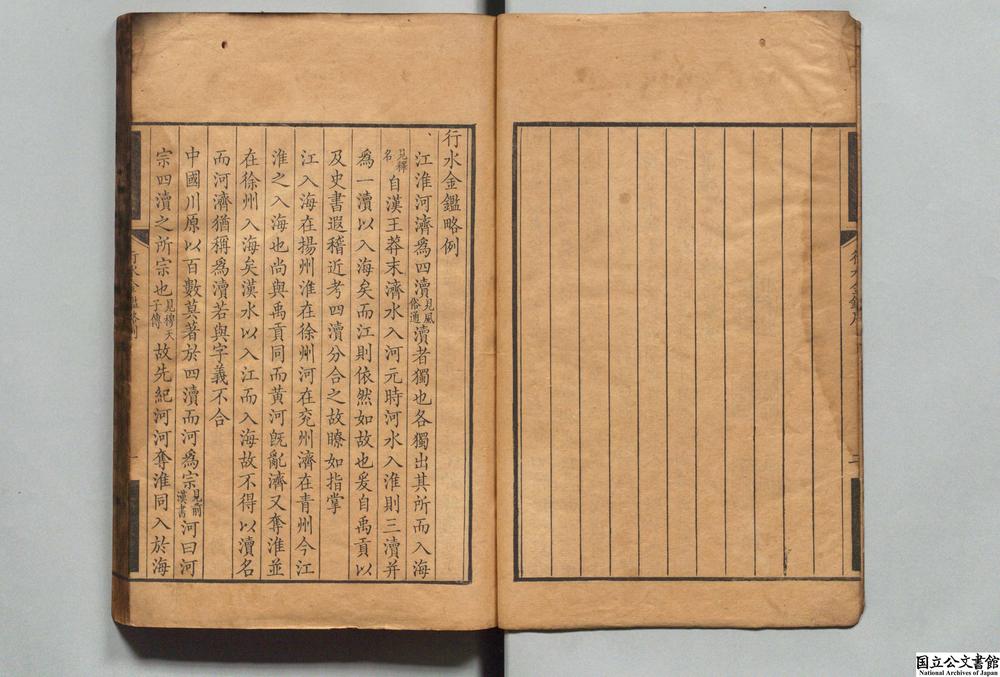 行水金鑑略例
江淮河濟爲四瀆見風俗通瀆者獨也各獨出其所而入海
見釋名自漢王莽末濟水入河元時河水入淮則三瀆并
爲一瀆以入海矣而江則依然如故也爰自禹貢以
及史書遐稽近考四瀆分合之故瞭如指掌
江入海在揚州淮在徐州河在兖州濟在青州今江
淮之入海也尚與禹貢同而黄河旣亂濟又奪淮並
在徐州入海矣漢水以入江而入海故不得以瀆名
而河濟猶稱爲瀆若與字義不合
中國川原以百數莫著於四瀆而河爲宗見前漢書河曰河
宗四瀆之所宗也見穆天子傳故先紀河河奪淮同入於海
行水金鑑
国立公文書館
National Archives of Japan